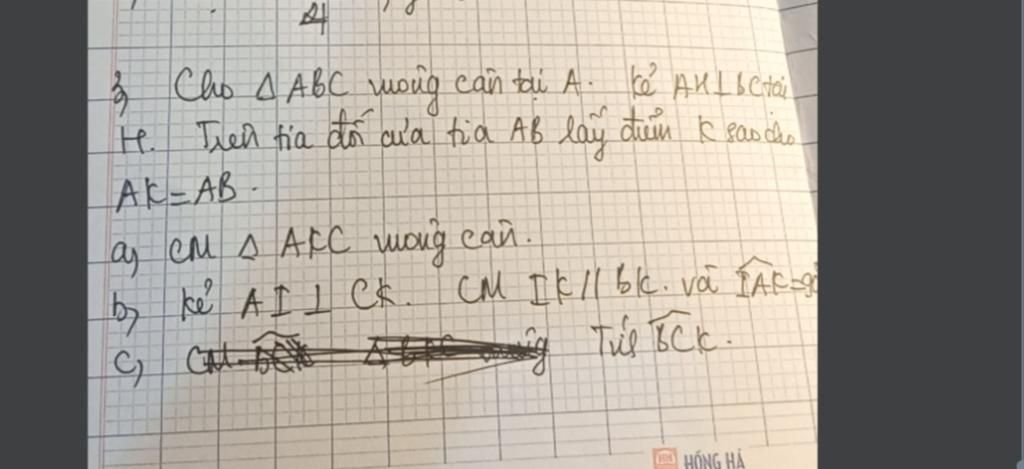 4
3, Cho Δ ABC vuông cân tại A. Kẻ AH⊥BC tại
H. Trên tia đối của tia AB lấy điểm K sao cho
AK=AB.
a, CM Δ AKC vuông cân.
b, Kẻ AI ⊥ CK. CM IK // BK. và IAK=9
c, Tính BCK.
HỒNG HÀ